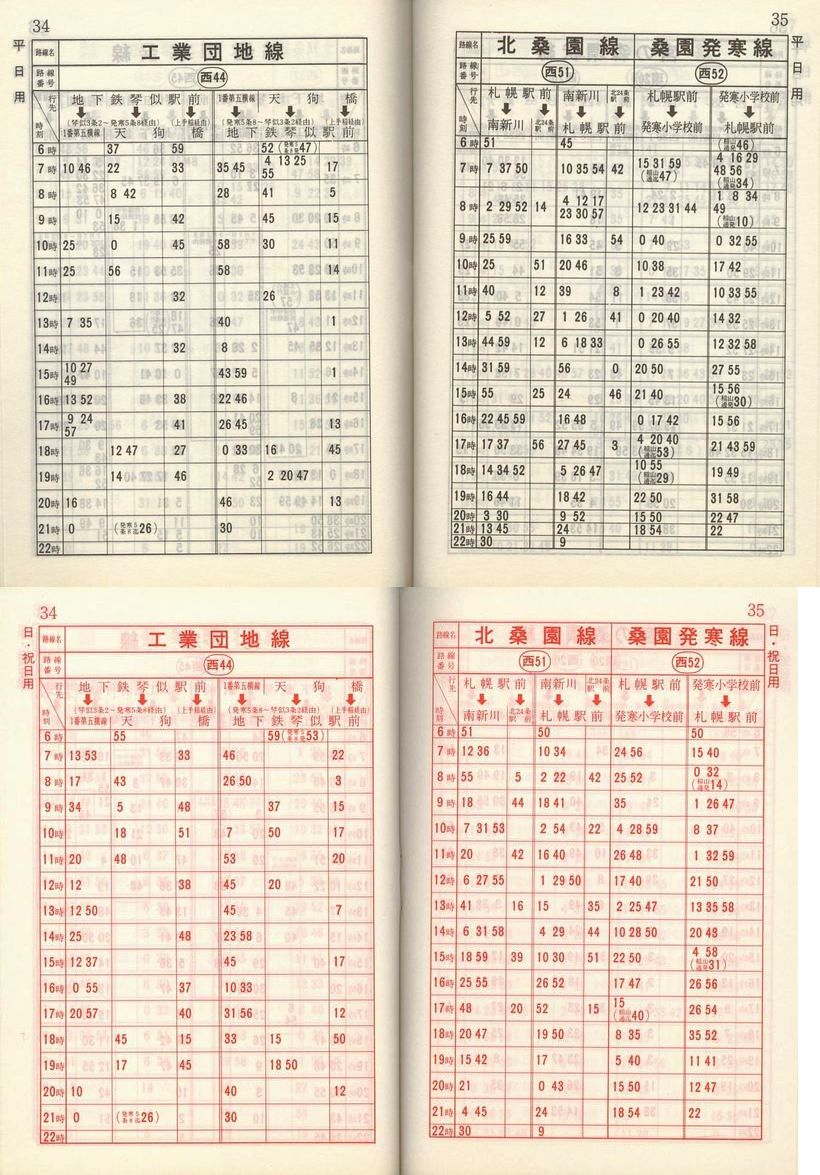 34
平日用
路線名 工業団地線
路線番号 西44
行先 時刻
地下鉄琴似駅前 (琴似3条2～発寒5条8経由) (上手稲経由)
1番第五横線 天狗橋
1番第五横線 天狗橋
(発寒5条8～琴似3条2経由) (上手稲経由)
地下鉄琴似駅前
6時 37 59 52 (発寒5条8発47)
7時 10 46 22 33 35 45 4 13 25 55 17
8時 8 42 28 41 5
9時 15 42 45 45 15
10時 25 0 45 58 30 11
11時 25 56 58 14
12時 32 26
13時 7 35 40 1
14時 32 8
15時 10 27 49 43 59 1
16時 13 52 38 22 46
17時 9 24 57 41 26 45 13
18時 12 47 27 0 33 16 45
19時 14 46 2 20 47
20時 16 46 13
21時 0 (発寒5条8迄26) 30
22時
35
平日用
路線名 北桑園線 桑園発寒線
路線番号 西51 西52
行先 時刻
札幌駅前 南新川 北24条駅前 札幌駅前 発寒小学校前
南新川 北24条駅前 札幌駅前 発寒小学校前 札幌駅前
6時 51 45 (稲山通発46)
7時 7 37 50 10 35 54 42 15 31 59 (稲山通迄47) 4 16 29 48 56 (稲山通発34)
8時 2 29 52 14 4 12 17 23 30 57 12 23 31 44 1 8 34 49 (稲山通発10)
9時 25 59 16 33 54 0 40 0 32 55
10時 25 51 20 46 10 38 17 42
11時 40 12 39 8 1 23 42 10 33 55
12時 5 52 27 1 26 41 0 20 40 14 32
13時 44 59 12 6 18 33 0 26 55 12 32 58
14時 31 59 56 0 20 50 27 55
15時 55 25 24 46 21 40 15 56 (稲山通発30)
16時 22 45 59 16 48 0 17 42 15 56
17時 17 37 56 27 45 3 4 20 40 (稲山通迄53) 21 43 59
18時 14 34 52 5 26 47 10 55 (稲山通迄29) 19 49
19時 16 44 18 42 22 50 31 58
20時 3 30 9 52 15 50 22 47
21時 13 45 24 18 54 22
22時 30 9
34
日・祝日用
路線名 工業団地線
路線番号 西44
行先 時刻
地下鉄琴似駅前 (琴似3条2～発寒5条8経由) (上手稲経由)
1番第五横線 天狗橋
1番第五横線 天狗橋
(発寒5条8～琴似3条2経由) (上手稲経由)
地下鉄琴似駅前
6時 55 59 (発寒5条8発53)
7時 13 53 33 46 22
8時 17 43 26 50 3
9時 34 5 48 37 15
10時 18 51 7 50 17
11時 20 48 53 20
12時 12 38 45 20
13時 12 50 45 7
14時 25 48 23 58
15時 12 37 45 17
16時 0 55 37 10 33
17時 20 57 40 31 56 12
18時 45 15 33 15 50
19時 17 45 18 50
20時 10 40 12
21時 0 (発寒5条8迄26) 30
22時
35
日・祝日用
路線名 北桑園線 桑園発寒線
路線番号 西51 西52
行先 時刻
札幌駅前 南新川 北24条駅前 札幌駅前 発寒小学校前
南新川 北24条駅前 札幌駅前 発寒小学校前 札幌駅前
6時 51 50 50
7時 12 36 10 34 24 56 15 40
8時 55 5 2 22 42 25 52 0 32 (稲山通発14)
9時 18 44 18 41 35 1 26 47
10時 7 31 53 2 54 22 4 28 59 8 37
11時 20 42 16 40 26 48 1 32 59
12時 6 27 55 1 29 50 17 40 21 50
13時 41 16 15 35 2 25 47 13 35 58
14時 6 31 58 4 29 44 10 28 50 20 48
15時 18 59 39 10 30 51 22 50 4 58 (稲山通発31)
16時 25 55 26 52 17 47 26 56
17時 48 20 52 15 15 (稲山通迄40) 26 54
18時 20 47 19 50 8 35 35 52
19時 15 42 17 5 40 11 41
20時 21 0 43 15 50 12 47
21時 4 45 24 18 54 22
22時 30 9